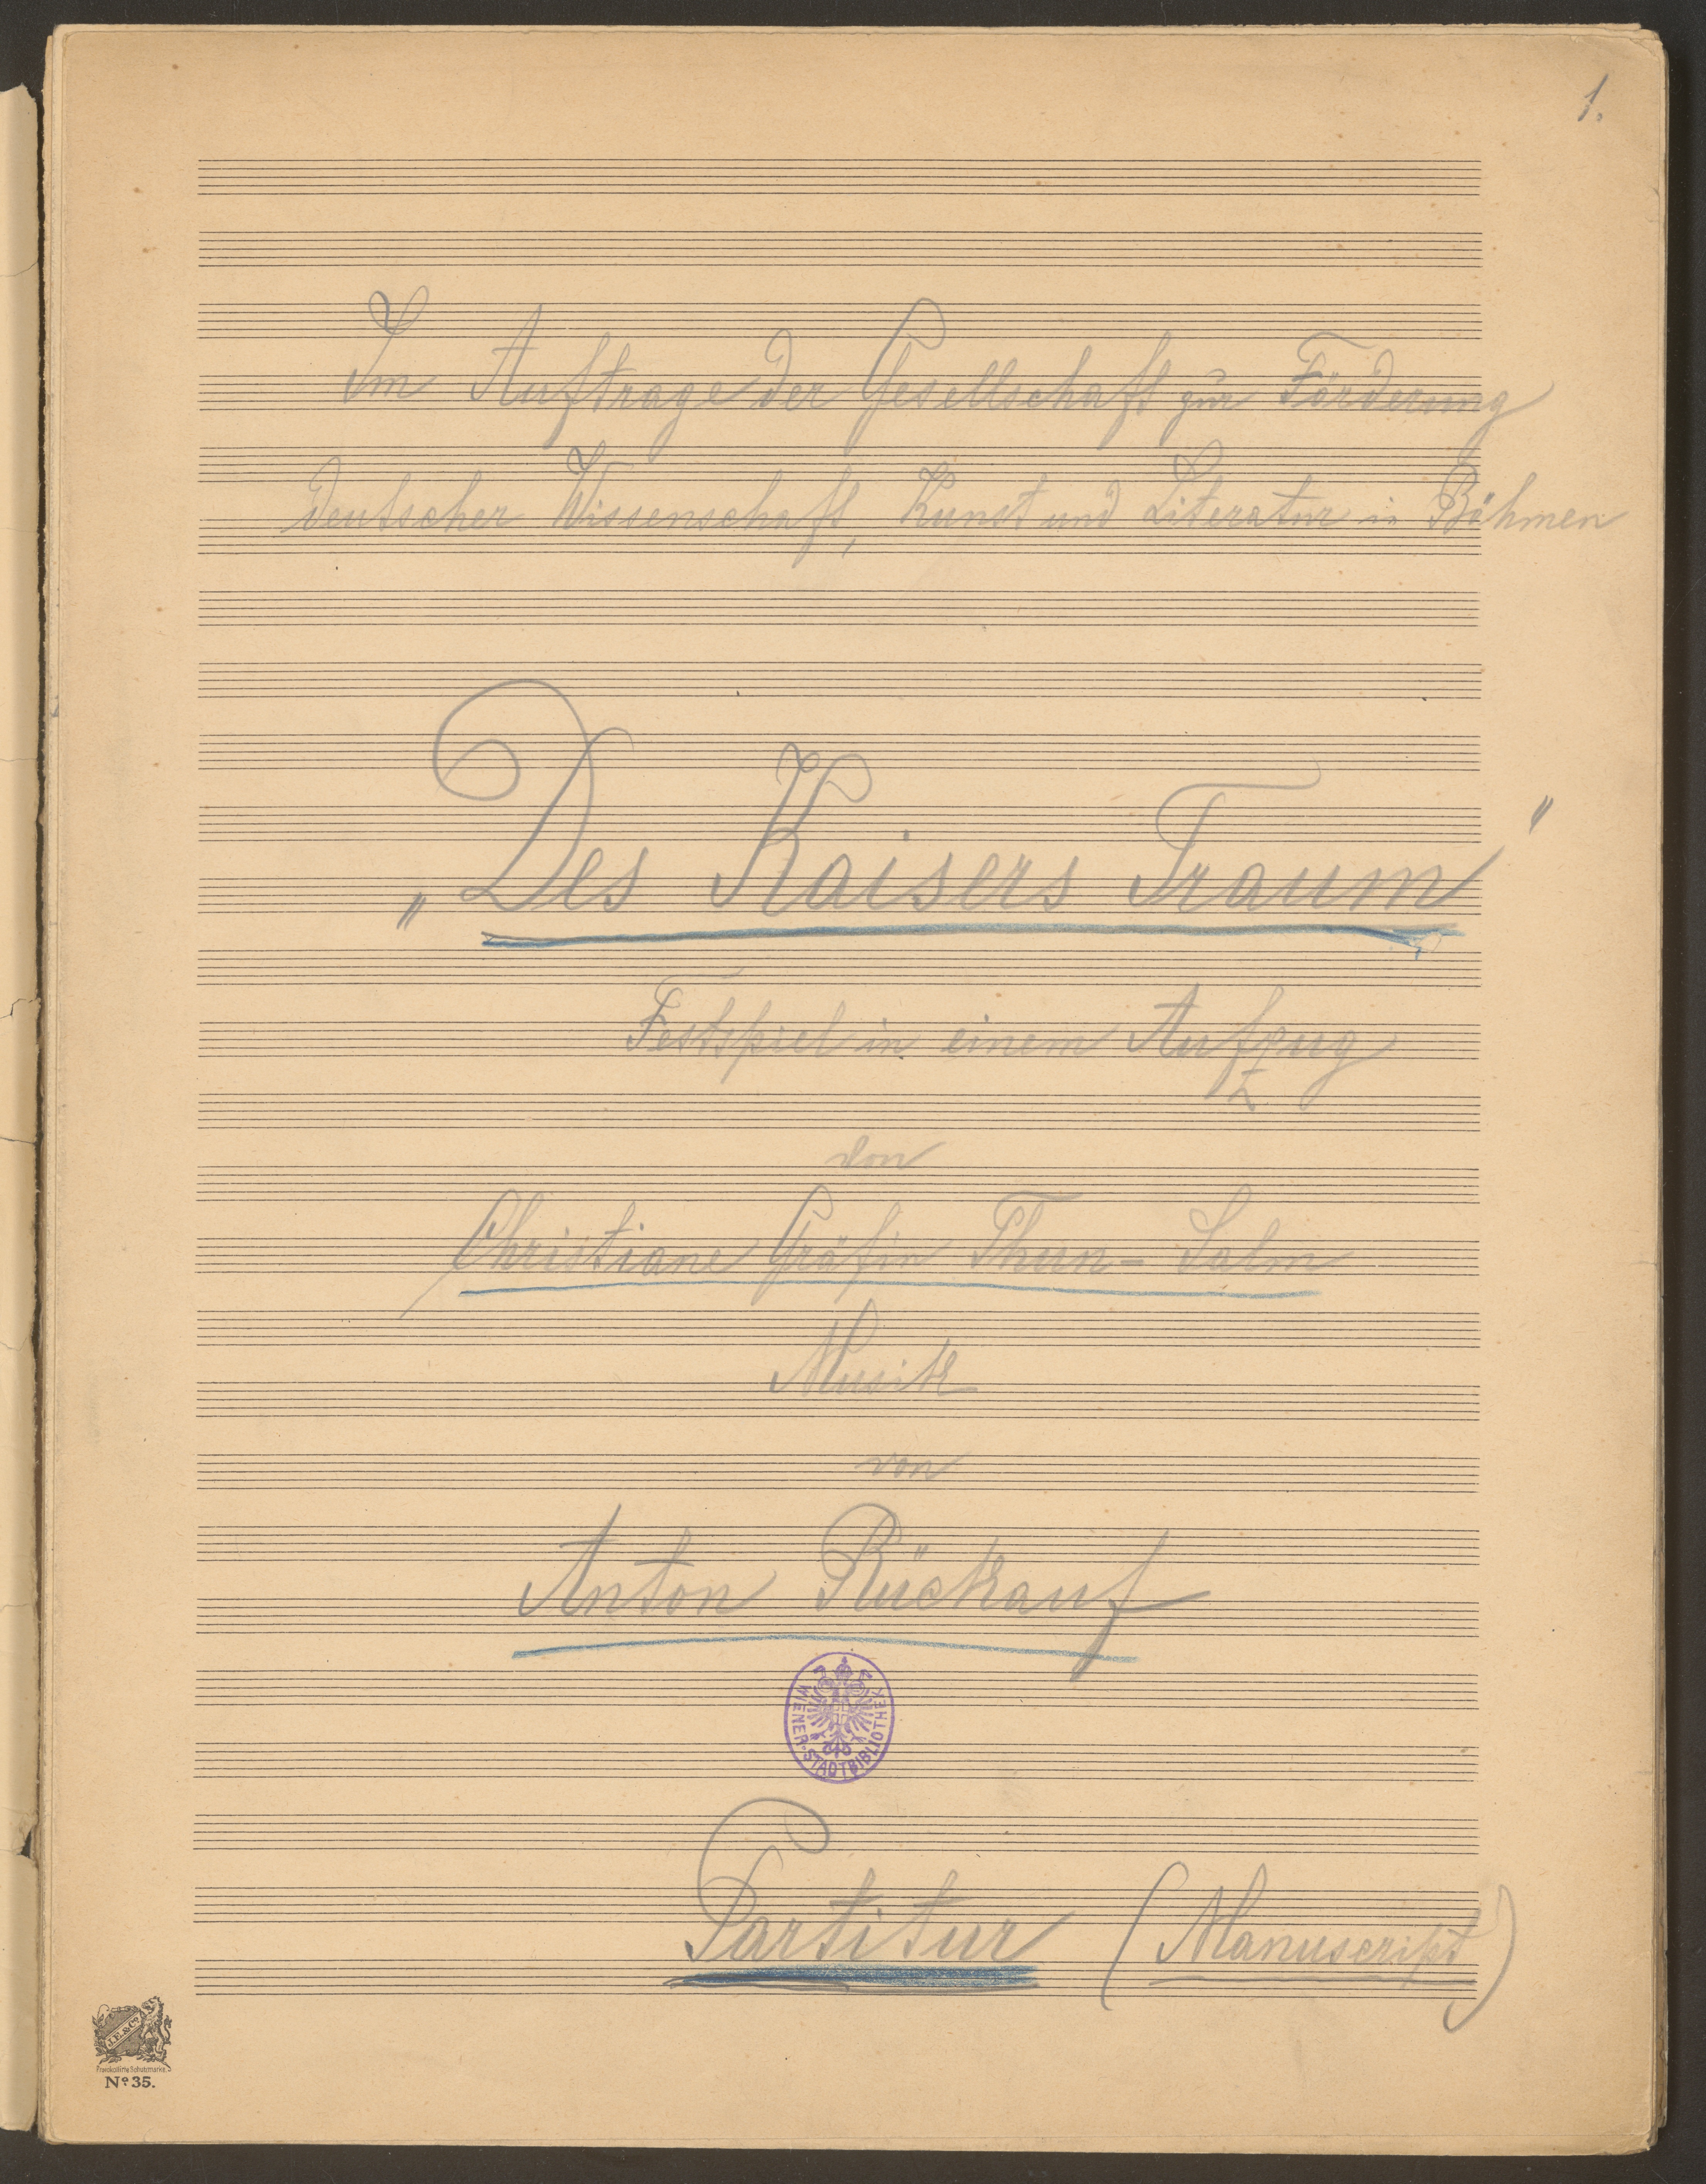 1.
Im Auftrage der Gesellschaft zur Förderung
deutscher Wissenschaft, Kunst und Literatur in Böhmen
„Des Kaisers Traum"
Festspiel in einem Aufzug
von
Christiane Gräfin Thun-Salm
Musik
von
Anton Rückauf
WIENER-STADTBIBLIOTHEK
Partitur (Manuscript)
J.E.&Co.
Protokollirte Schutzmarke.
No 35.